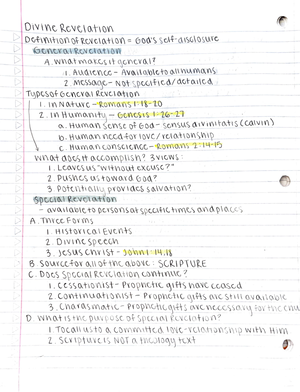 Divine Revelation
Definition of Revelation = God's self-disclosure
General Revelation
A. What makes it general?
1. Audience - Available to all humans
2. Message - Not specified/detailed
Types of General Revelation
1. in Nature - Romans 1:18-20
2. in Humanity - Genesis 1:26-27
a. Human sense of God - sensus divinitatis (Calvin)
b. Human need for love/relationship
c. Human conscience - Romans 2:14-15
What does it accomplish? 3 views:
1. Leaves us "without excuse?"
2. Pushes us toward God?
3. Potentially provides salvation?
Special Revelation
- available to persons at specific times and places
A. Three Forms
1. Historical Events
2. Divine Speech
3. Jesus Christ - John 1:14,18
B. Source for all of the above: SCRIPTURE
C. Does Special Revelation continue?
1. Cessationist - Prophetic gifts have ceased
2. Continuationist - Prophetic gifts are still available
3. Charasmatic - Prophetic gifts are necessary for the
D. What is the purpose of special revelation?
1. To call us to a committed love-relationship with Him
2. Scripture is NOT a theology text